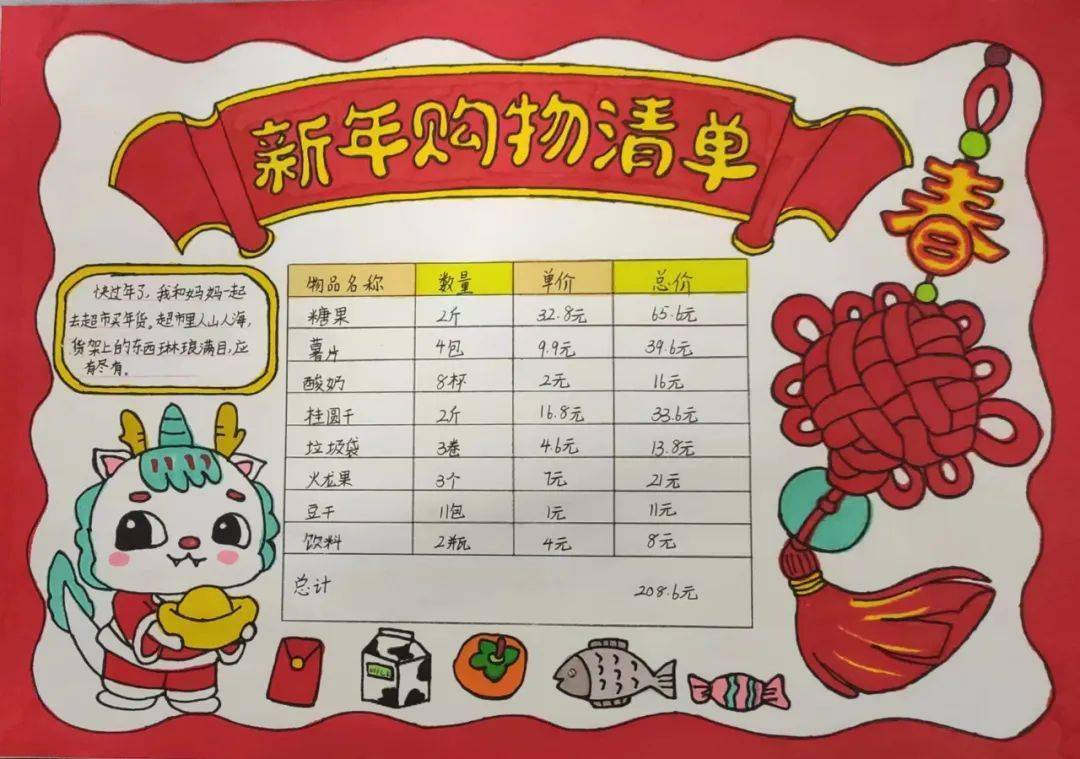 新年购物清单
春
快过年了，我和妈妈一起
去超市买年货。超市里人山人海，
货架上的东西琳琅满目，应
有尽有。
物品名称 数量 单价 总价
糖果 2斤 32.8元 65.6元
薯片 4包 9.9元 39.6元
酸奶 8杯 2元 16元
桂圆干 2斤 16.8元 33.6元
垃圾袋 3卷 4.6元 13.8元
火龙果 3个 7元 21元
豆干 11包 1元 11元
饮料 2瓶 4元 8元
总计 208.6元
MILK